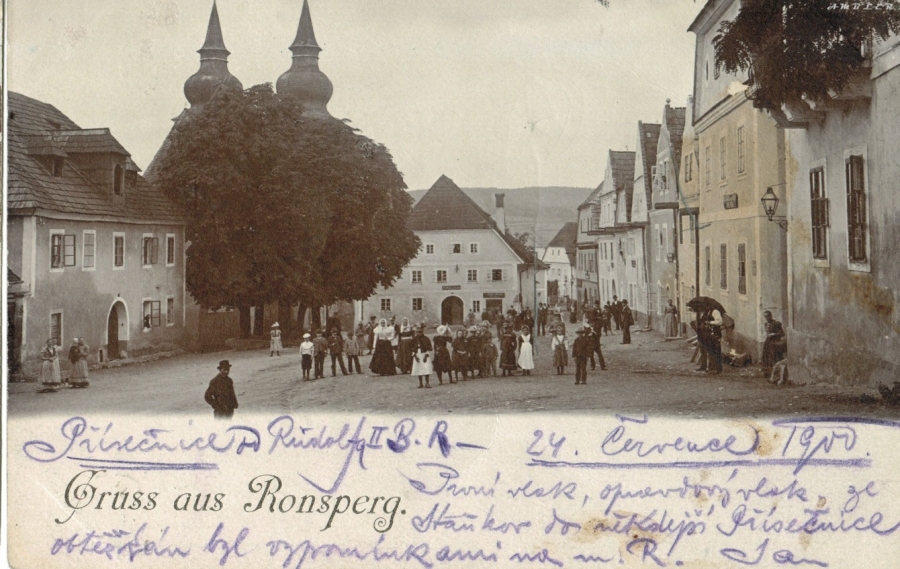 AMPLER
Přísečnice od Rudolfa II B. R. – 24. Července 1900.
Gruss aus Ronsperg.
První vlak, opravdový vlak, ze
Staňkov do někdejší Přísečnice
obtěžkán byl vzpomínkami na m. R. Jan